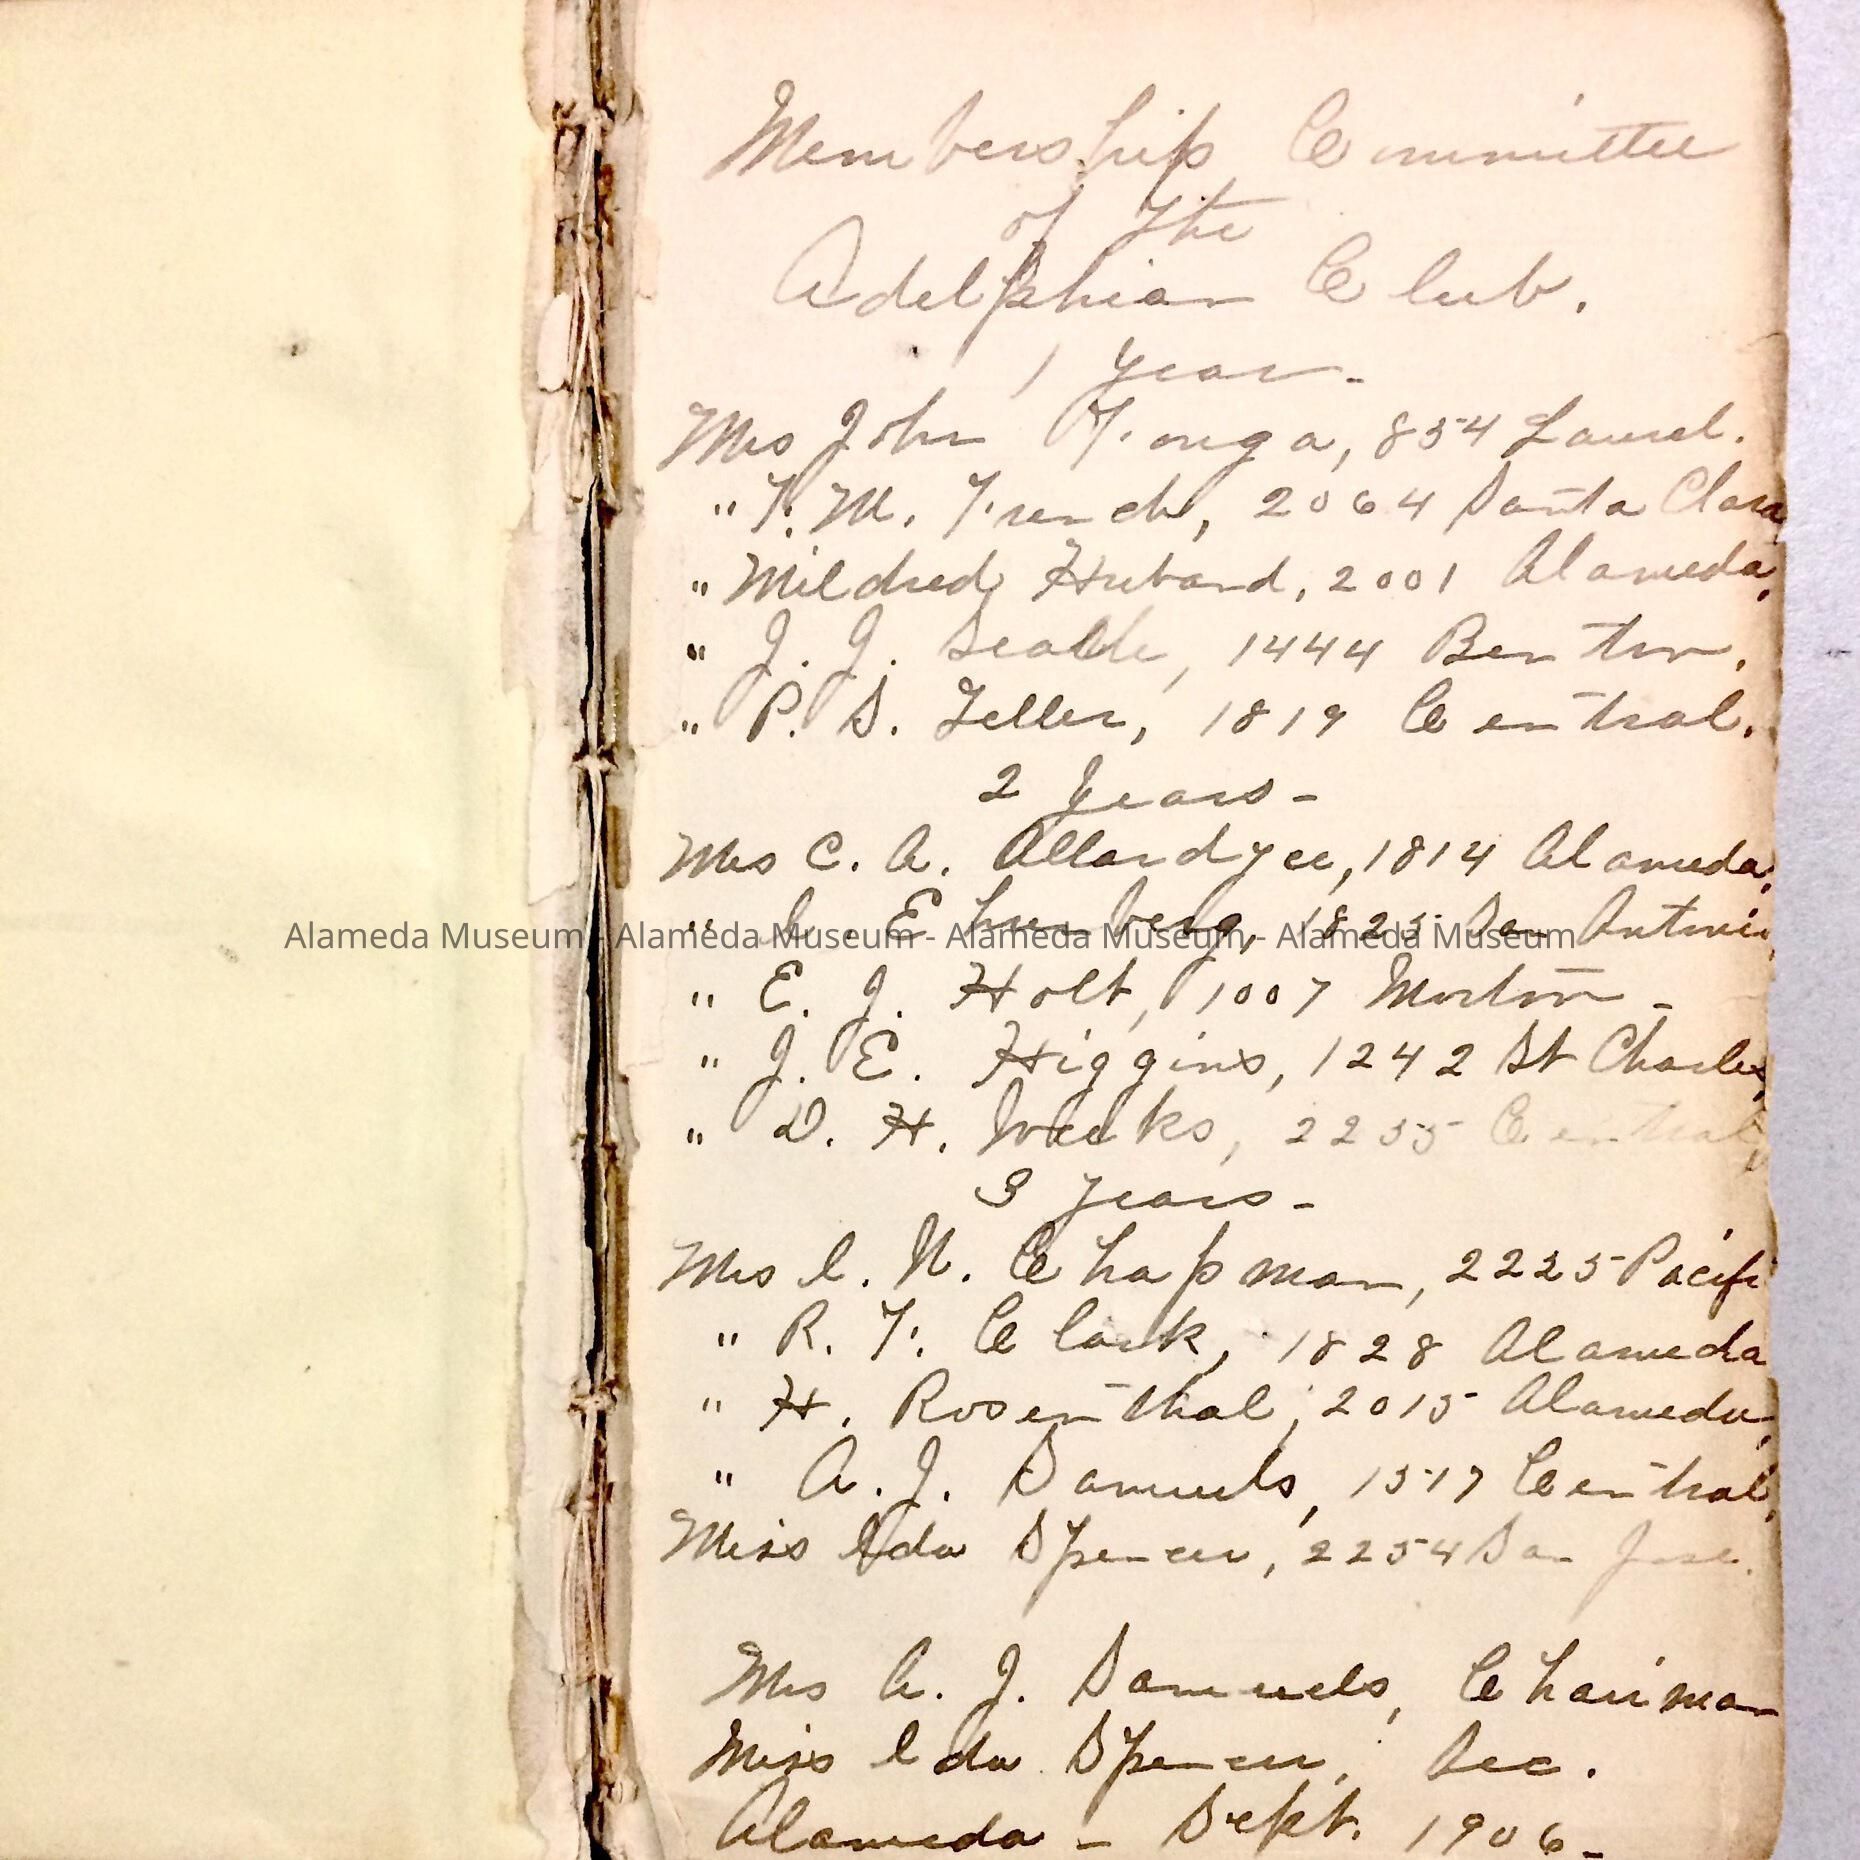 Membership Committee
of the
Adelphian Club.
1 Year-
Mrs John F. onga, 854 Laurel.
" F. M. French, 2064 Santa Clara,
" Mildred Huband, 2001 Alameda,
" J. J. 1444 Benton,
" P. S. Teller, 1819 Central.
2 Years-
Mrs C. A. Allardyce, 1814 Alameda,
" Ehrenberg, 1825 San Antonio,
" E. J. Holt, 1007 Morton-
" J. E. Higgins, 1242 St Charles,
" D. H. Weeks, 2255 Central,
3 Years-
Mrs I. N. Chapman, 2225 Pacifi
" R. F. Clark, 1828 Alameda
" H. Rosenthal, 2015 Alameda,
" A. J. Samuels, 1517 Central,
Miss Ida Spencer, 2254 San Jose.
Mrs A. J. Samuels, Chairman
Miss Ida Spencer, Sec.
Alameda - Sept. 1906-
Alameda Museum - Alameda Museum - Alameda Museum - Alameda Museum